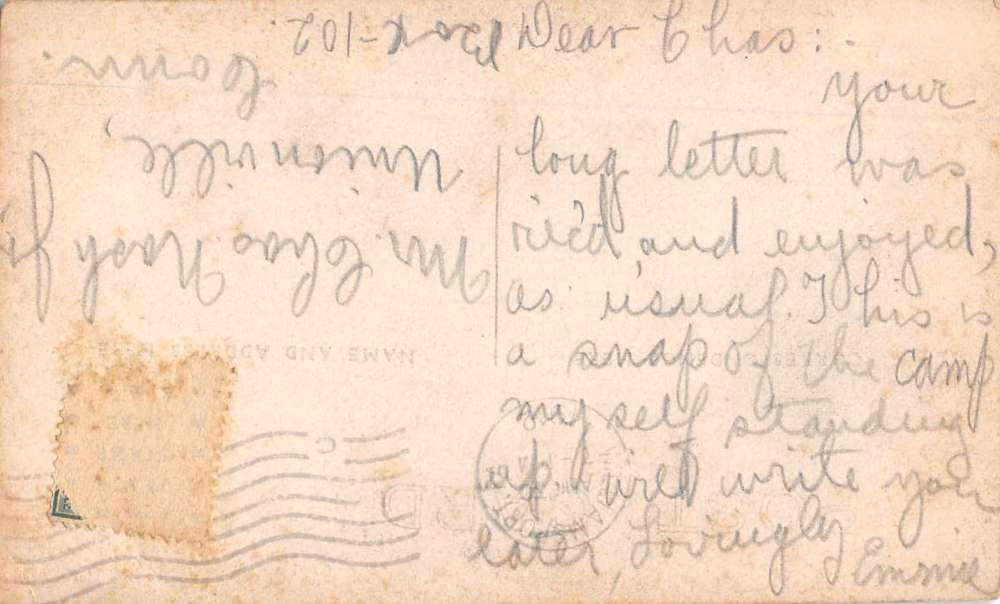 Dear Chas: -
your
long letter was
rec'd, and enjoyed,
as usual. This is
a snap of the camp
myself standing
up. Will write you
later, Lovingly
Emmie
Mr. Chas Nash Jr
Unionville,
Conn.
Box-102.
NAME AND ADDRESS HERE